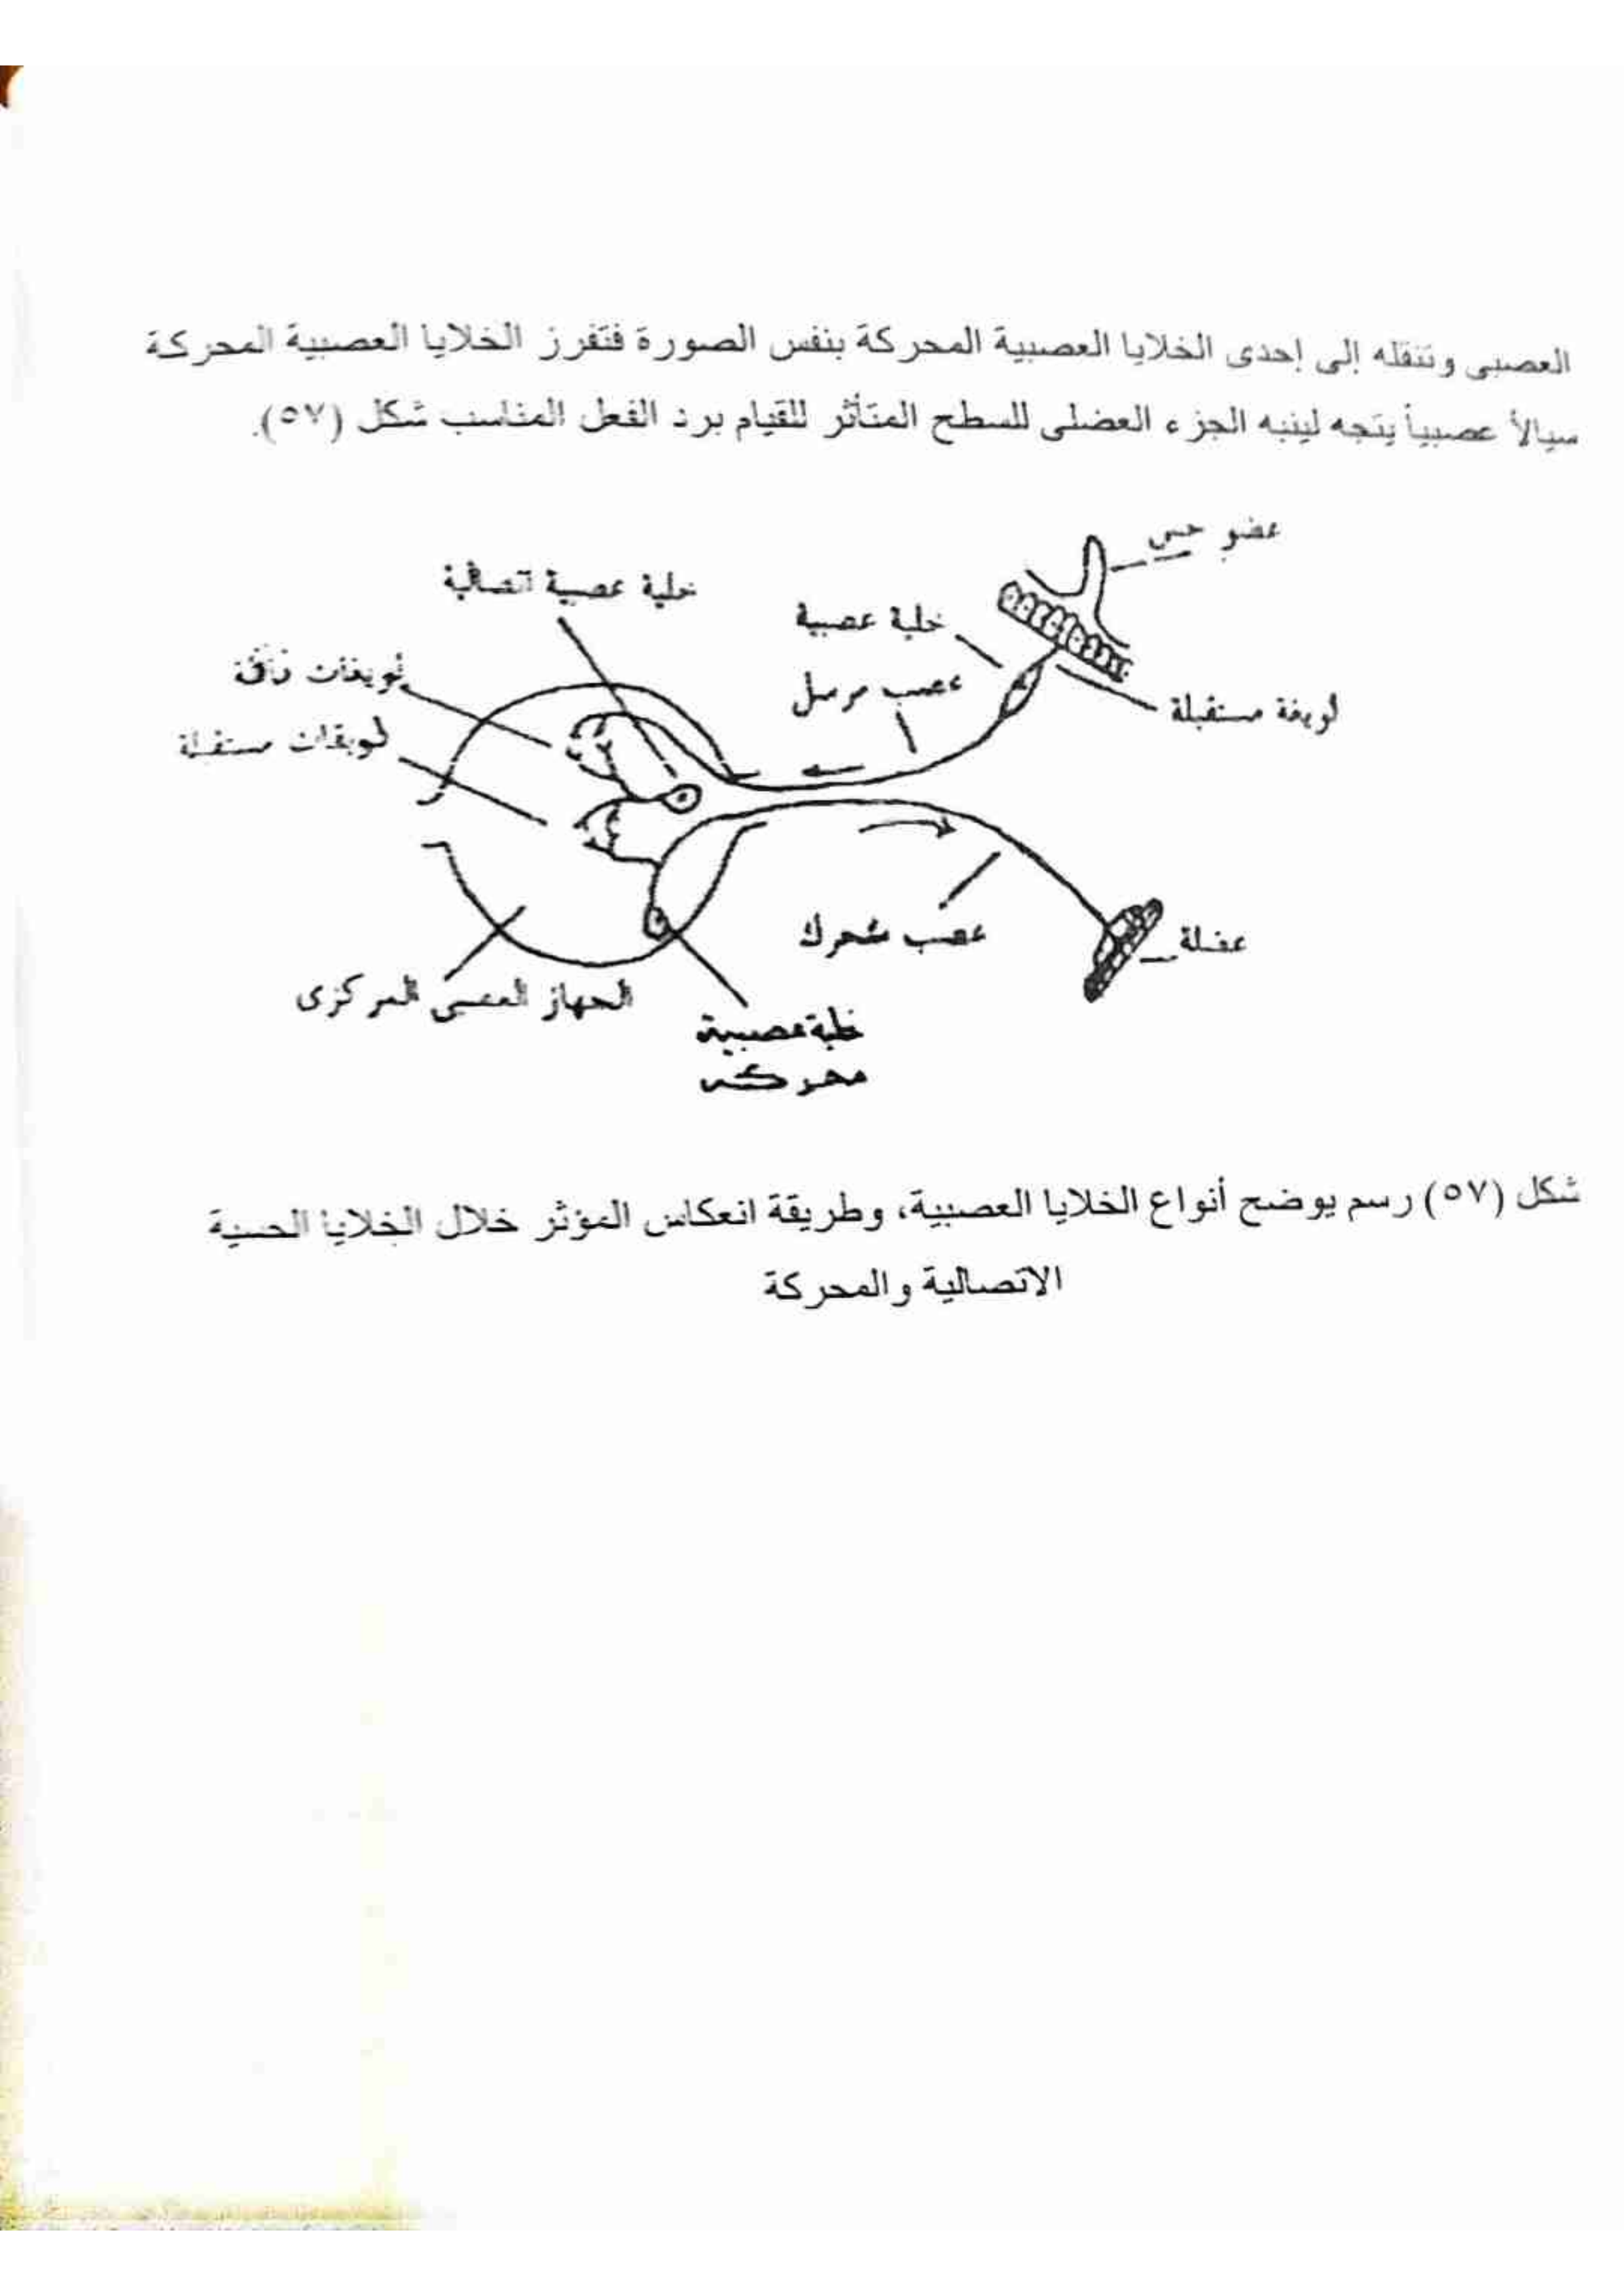 العصبى وتنقله إلى إحدى الخلايا العصبية المحركة بنفس الصورة فتفرز الخلايا العصبية المحركة
سيالاً عصبياً يتجه لينبه الجزء العضلى للسطح المتأثر للقيام برد الفعل المناسب شكل (٥٧).
عضو حس
خلية عصبية اتصالية
خلية عصبية
لويفات
عصب مرسل
لويفة مستقبلة
مستقبلة
عصب محرك
عضلة
الجهاز العصبى المركزى
خلية عصبية
محركة
شكل (٥٧) رسم يوضح أنواع الخلايا العصبية، وطريقة انعكاس المؤثر خلال الخلايا الحسية
الاتصالية والمحركة